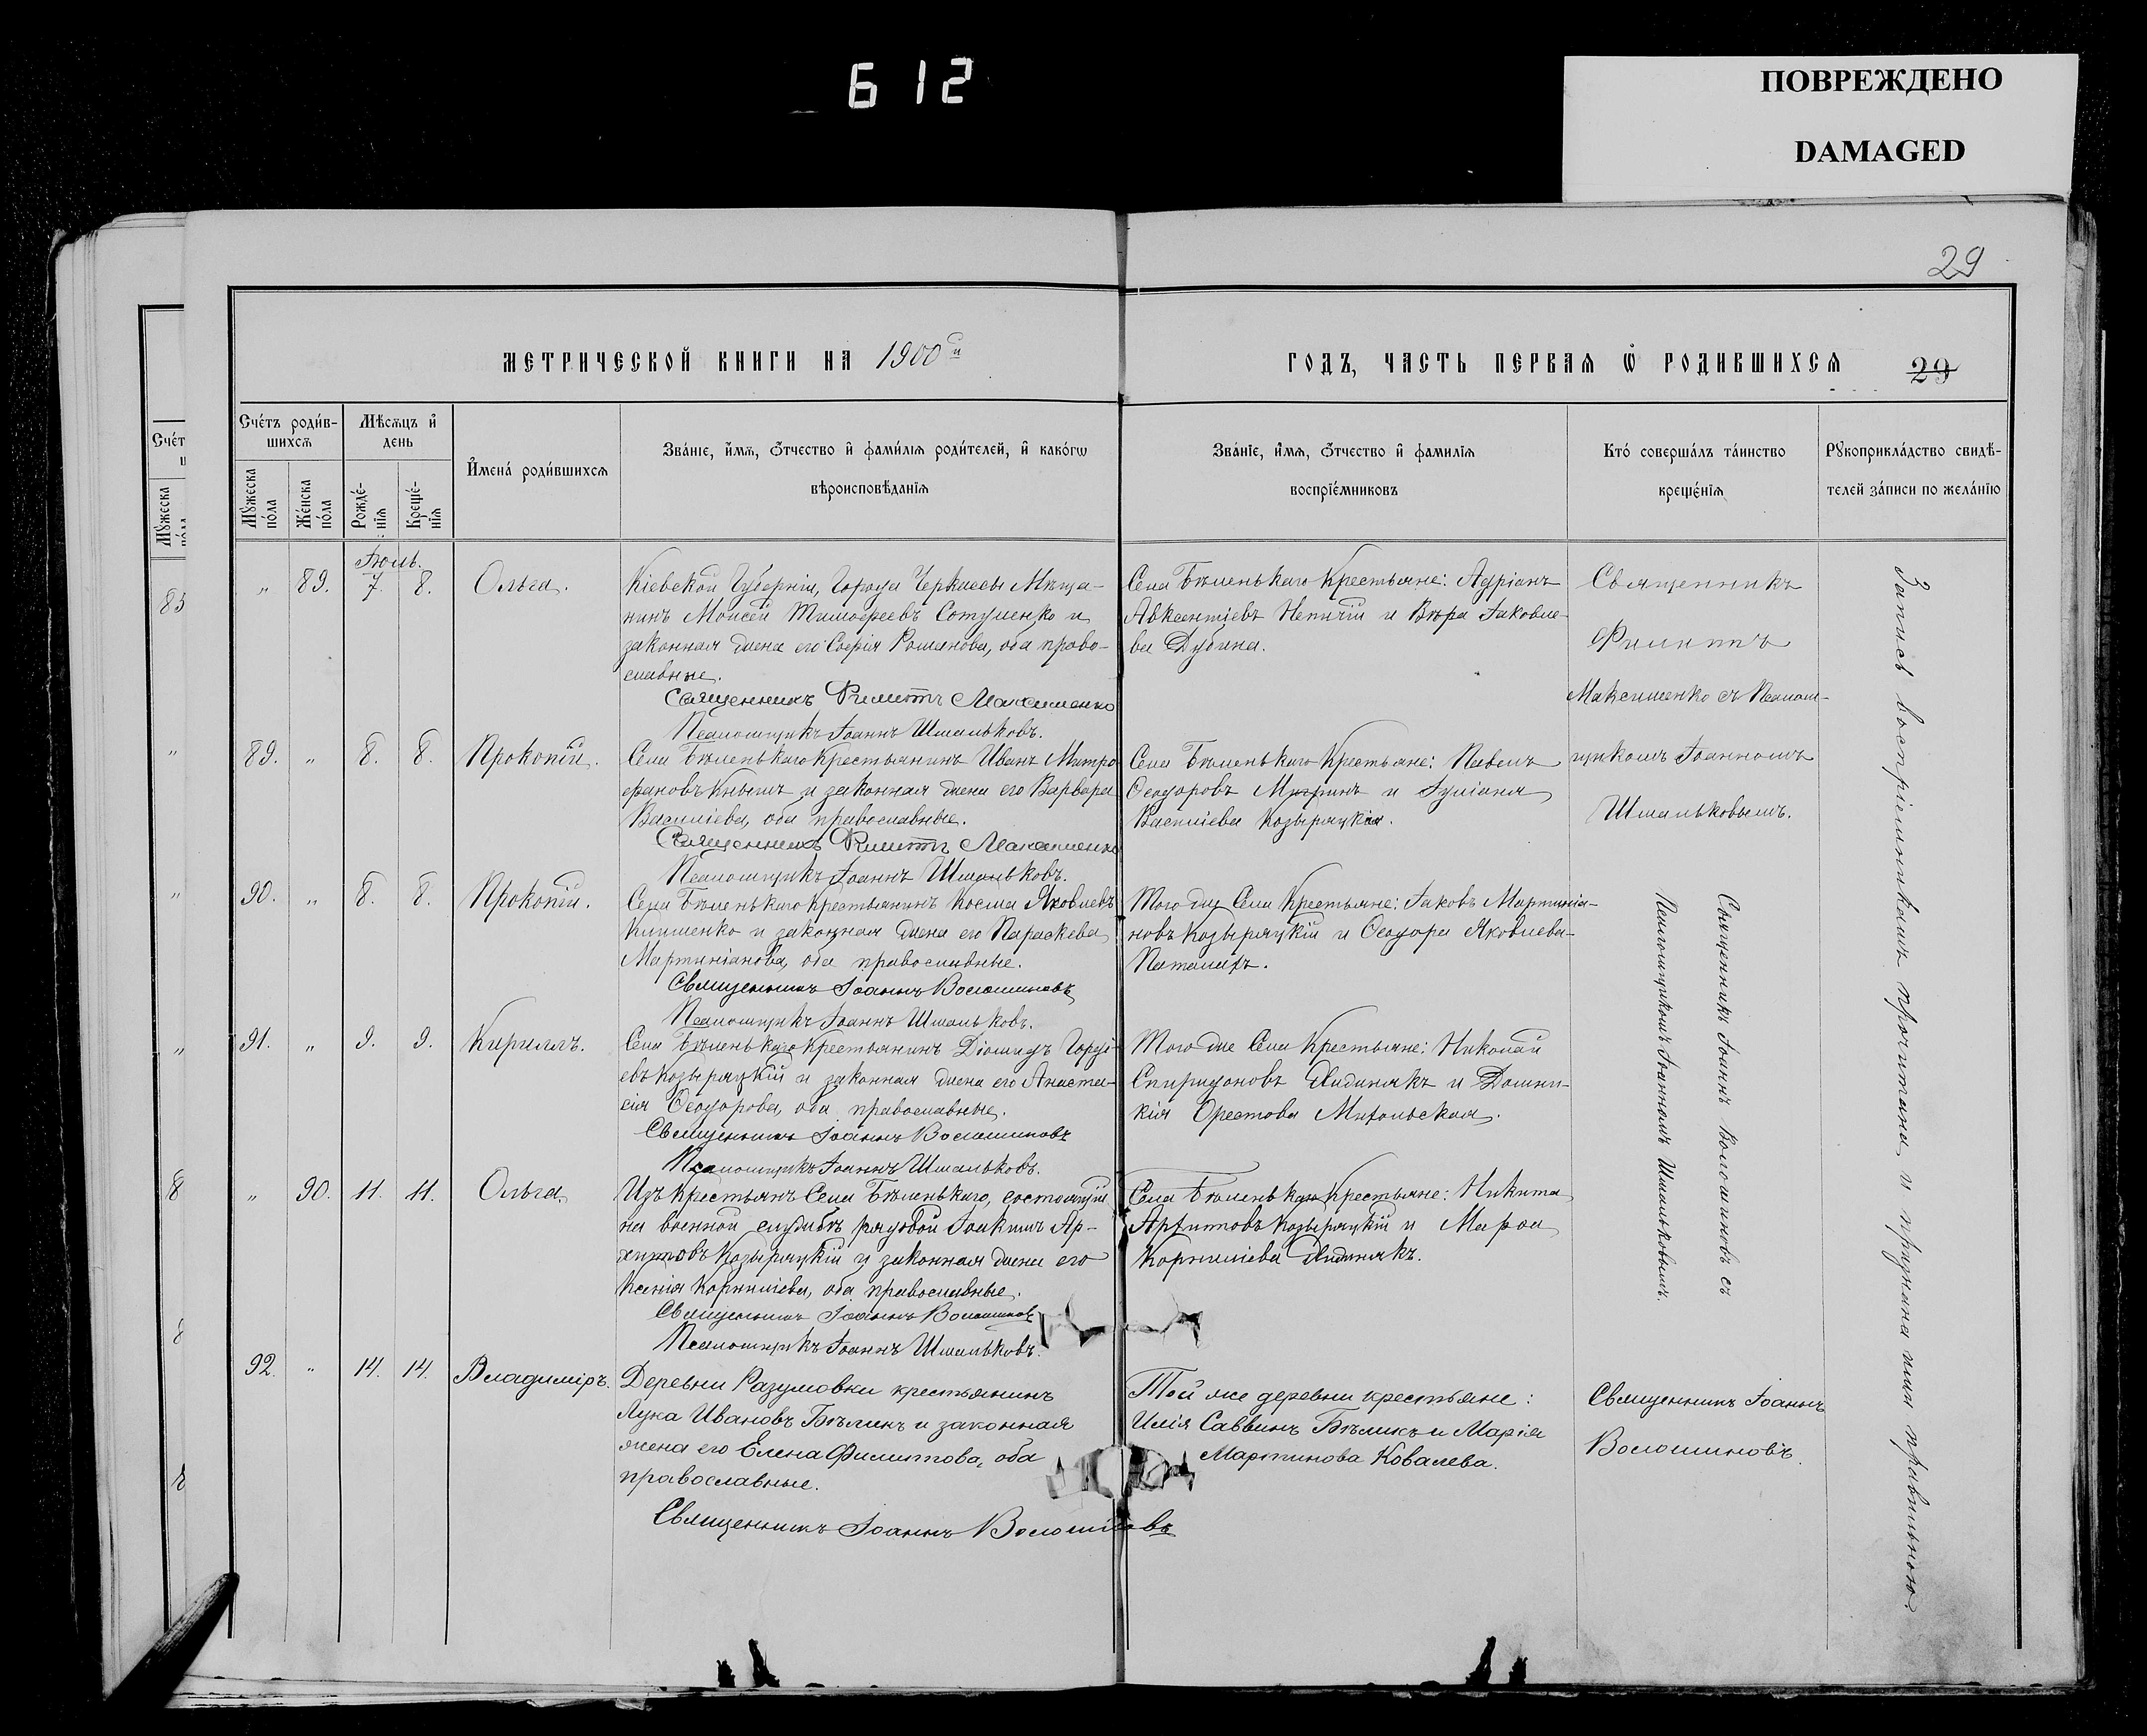 612
ПОВРЕЖДЕНО
DAMAGED
29
МЕТРИЧЕСКОЙ КНИГИ НА 1900й
ГОДЪ, ЧАСТЬ ПЕРВАЯ Ѡ РОДИВШИХСЯ
29
Счéтъ роди́в-
шихсѧ
Мꙋ́жеска по́ла
Же́нска по́ла
Мѣ́сѧцъ и҆ день
Рожде́-нїѧ
Креще́-нїѧ
И҆мена̀ роди́вшихсѧ
Зва́нїе, и҆́мѧ, ѻ҆́тчество и҆ фами́лїѧ роди́телей, и҆ како́гѡ
вѣроисповѣ́данїѧ
Зва́нїе, и҆́мѧ, ѻ҆́тчество и҆ фами́лїѧ
воспрїе́мниковъ
Кто̀ соверша́лъ та́инство
креще́нїѧ
Рꙋкоприкла́дство свидѣ́-
телей за́писи по жела́нїю
Іюль.
„ 89. 7. 8. Ольга.
Кіевской Губерніи, Города Черкассы Мѣща-
нинъ Моисей Тимоѳеевъ Сотуленко и
законная жена его Софія Романова, оба право-
славные.
Священникъ Филиппъ Максименко
Псаломщикъ Іоаннъ Шмальковъ.
Села Бѣленькаго Крестьяне: Адріанъ
Авксентіевъ Непчій и Вѣра Іаковле-
ва Дубина.
Священникъ
Филиппъ
Максименко съ Псалом-
щикомъ Іоанномъ
Шмальковымъ.
89. „ 8. 8. Прокопій.
Села Бѣленькаго Крестьянинъ Иванъ Митро
фановъ Кнышъ и законная жена его Варвара
Василіева, оба православные.
Священникъ Филиппъ Максименко
Псаломщикъ Іоаннъ Шмальковъ.
Села Бѣленькаго Крестьяне: Павелъ
Ѳеодоровъ и Іуліанія
Василіева Козыряцкія.
90. „ 8. 8. Прокопій.
Села Бѣленькаго Крестьянинъ Косма Яковлевъ
Клименко и законная жена его Параскева
Мартиніанова, оба православные.
Священникъ Іоаннъ Волошиновъ
Псаломщикъ Іоаннъ Шмальковъ.
Того же Села Крестьяне: Іаковъ Мартиніа-
новъ Козыряцкій и Ѳеодора Яковлева
Паталахъ.
91. „ 9. 9. Кириллъ.
Села Бѣленькаго Крестьянинъ Діомидъ Горді-
евъ Козыряцкій и законная жена его Анаста-
сія Ѳеодорова, оба православные.
Священникъ Іоаннъ Волошиновъ
Псаломщикъ Іоаннъ Шмальковъ.
Того же Села Крестьяне: Николай
Спиридоновъ и Домни-
кія Орестова Михольская.
„ 90. 11. 11. Ольга.
Изъ Крестьянъ Села Бѣленькаго, состоящій
на военной службѣ рядовой Іоакимъ Ар-
хиповъ Козыряцкій и законная жена его
Ксенія Корниліева, оба православные.
Священникъ Іоаннъ Волошиновъ
Псаломщикъ Іоаннъ Шмальковъ.
Села Бѣленькаго Крестьяне: Никита
Архиповъ Козыряцкій и Марѳа
Корниліева
Священникъ Іоаннъ Волошиновъ съ
Псаломщикомъ Іоанномъ Шмальковымъ.
92. „ 14. 14. Владиміръ.
Деревни Разумовки крестьянинъ
Лука Ивановъ Бѣликъ и законная
жена его Елена Филиппова, оба
православные.
Священникъ Іоаннъ Волошиновъ
Той же деревни крестьяне:
Илія Саввинъ Бѣликъ и Марія
Мартинова Ковалева.
Священникъ Іоаннъ
Волошиновъ.
Запись воспріемникамъ прочитана и признана ими правильною.